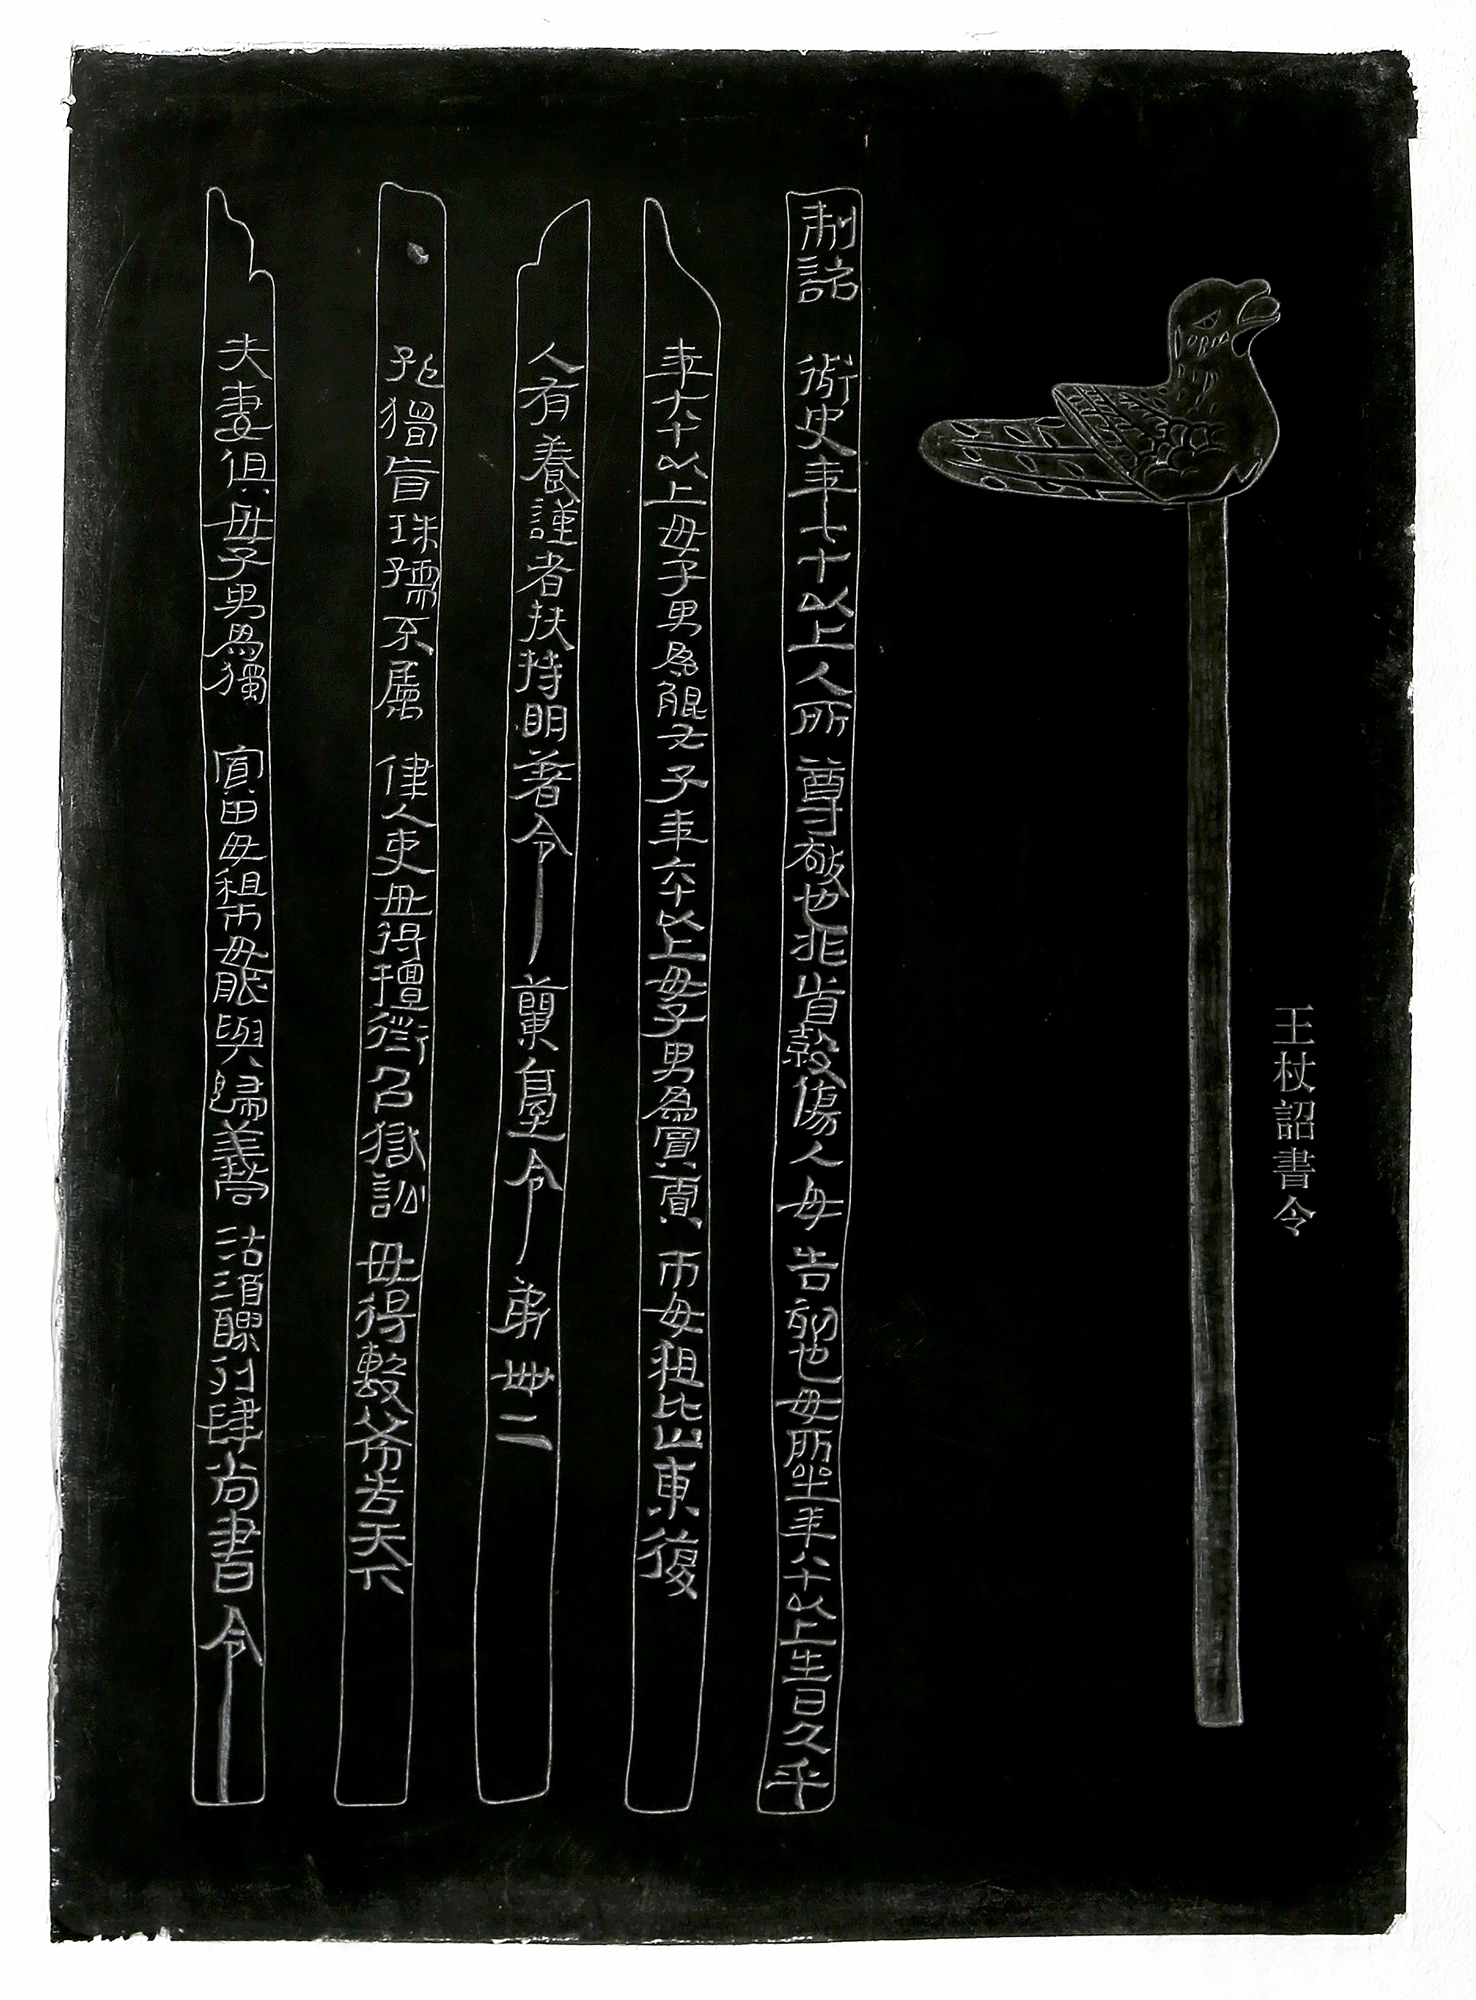 王杖詔書令
制詔 御史年七十以上人所尊敬也非首殺傷人毋告劾也毋所坐年八十以上生日久乎
年六十以上毋子男為鯤女子年六十以上毋子男為寡賈市毋租比山東復
人有養謹者扶持明著令 蘭臺令第卌二
孤獨盲珠孺不屬律人吏毋得擅徵召獄訟毋得毄布告天下
夫妻俱毋子男為獨寡田毋租市毋賦與歸義同沽酒醪列肆尚書令